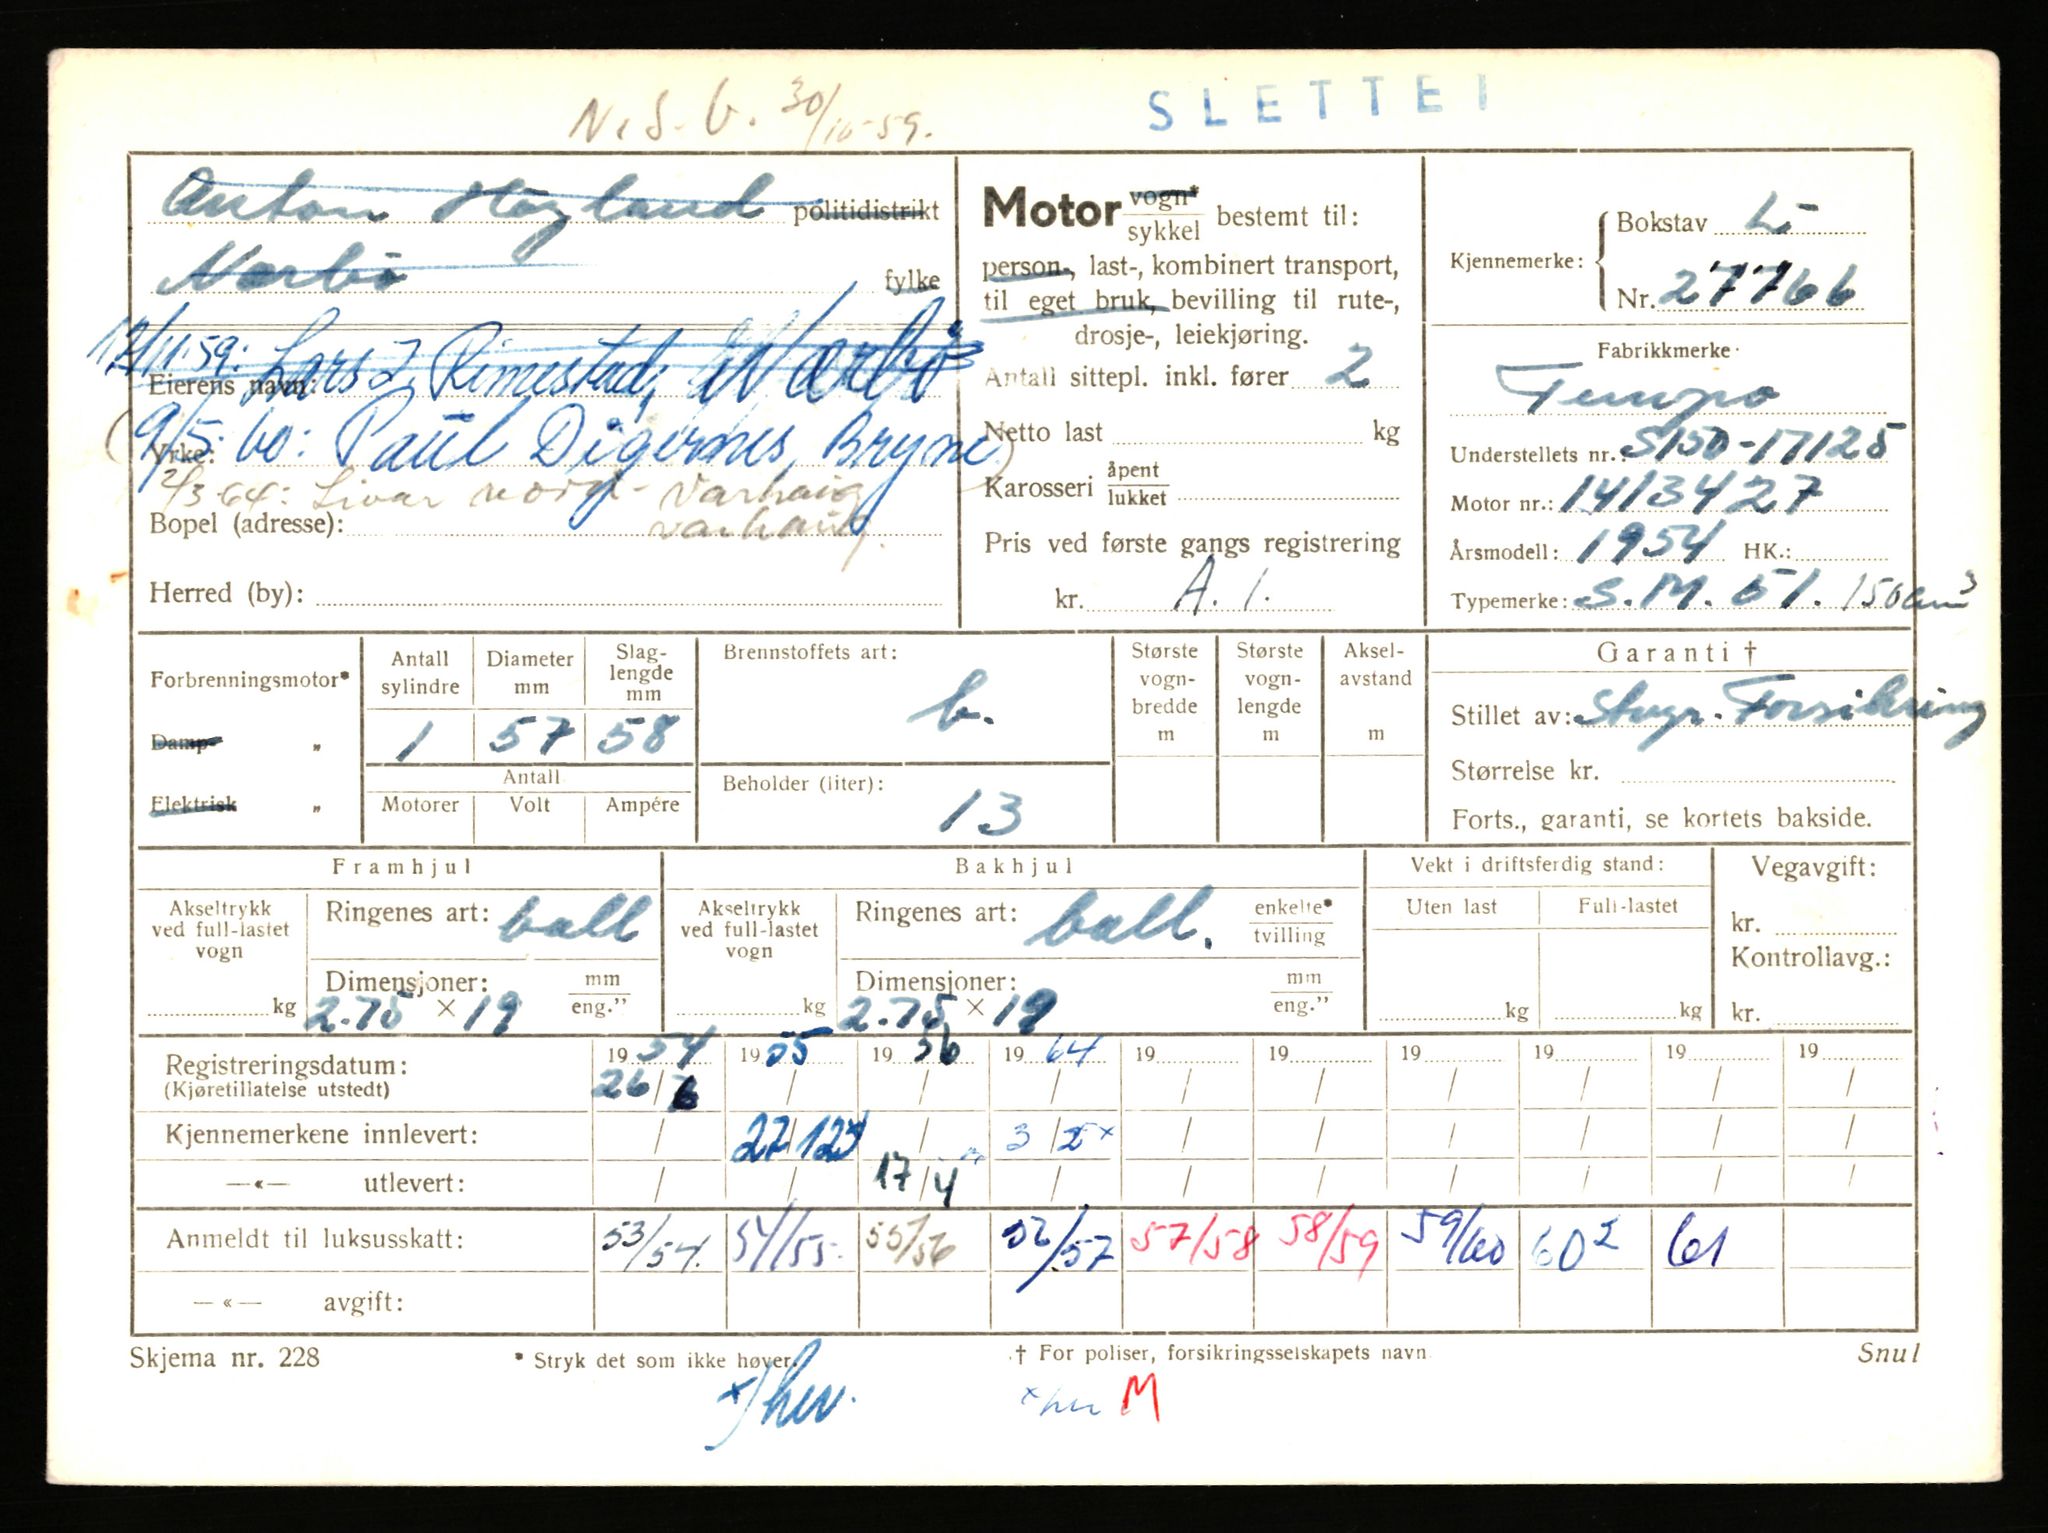 N.S.U. 30/10-59.
SLETTET
Anton Høyland politidistrikt
Nærbø fylke
12/11-59: Lars J. Rimestad, Nærbø
Eierens navn:
(9/5: bo: Paul Digernes, Bryne)
Yrke:
2/3-64: Livar Varhaug
Varhaug.
Bopel (adresse):
Herred (by):
Motor vogn* sykkel bestemt til:
person-, last-, kombinert transport,
til eget bruk, bevilling til rute-,
drosje-, leiekjøring.
Antall sittepl. inkl. fører 2
Netto last kg
Karosseri åpent lukket
Pris ved første gangs registrering
kr. A. 1.
Kjennemerke:
Bokstav L
Nr. 27766
Fabrikkmerke
Tempo
Understellets nr.: S150-17125
Motor nr.: 1413427
Årsmodell: 1954 HK.:
Typemerke: S.M. 51. 150 cm³
Forbrenningsmotor*
Damp- „
Elektrisk „
Antall sylindre
1
Diameter mm
57
Slag-
lengde
mm
58
Antall
Motorer Volt Ampére
Brennstoffets art:
b.
Beholder (liter):
13
Største
vogn-
bredde
m
Største
vogn-
lengde
m
Aksel-
avstand
m
Garanti †
Stillet av: Forsikring
Størrelse kr.
Forts., garanti, se kortets bakside.
Framhjul
Akseltrykk
ved full-lastet
vogn
kg
Ringenes art: ball
Dimensjoner: mm eng."
2.75 × 19
Bakhjul
Akseltrykk
ved full-lastet
vogn
kg
Ringenes art: ball. enkelte* tvilling
Dimensjoner: mm eng."
2.75 × 19
Vekt i driftsferdig stand:
Uten last Full-lastet
kg kg
Vegavgift:
kr.
Kontrollavg.:
kr.
Registreringsdatum: 1954 1955 1956 1964 19 19 19 19 19 19
(Kjøretillatelse utstedt) 26/6 / / / / / / / / /
Kjennemerkene innlevert: / 27/12 / 3/2 × / / / / / /
—«— utlevert: / / 17/4 × / / / / / / /
Anmeldt til luksusskatt: 53/54. 54/55. 55/56 56/57 57/58 58/59 59/60 60² 61
—«— avgift:
Skjema nr. 228
* Stryk det som ikke høver.
† For poliser, forsikringsselskapets navn
Snul
×/hev.
× hev M